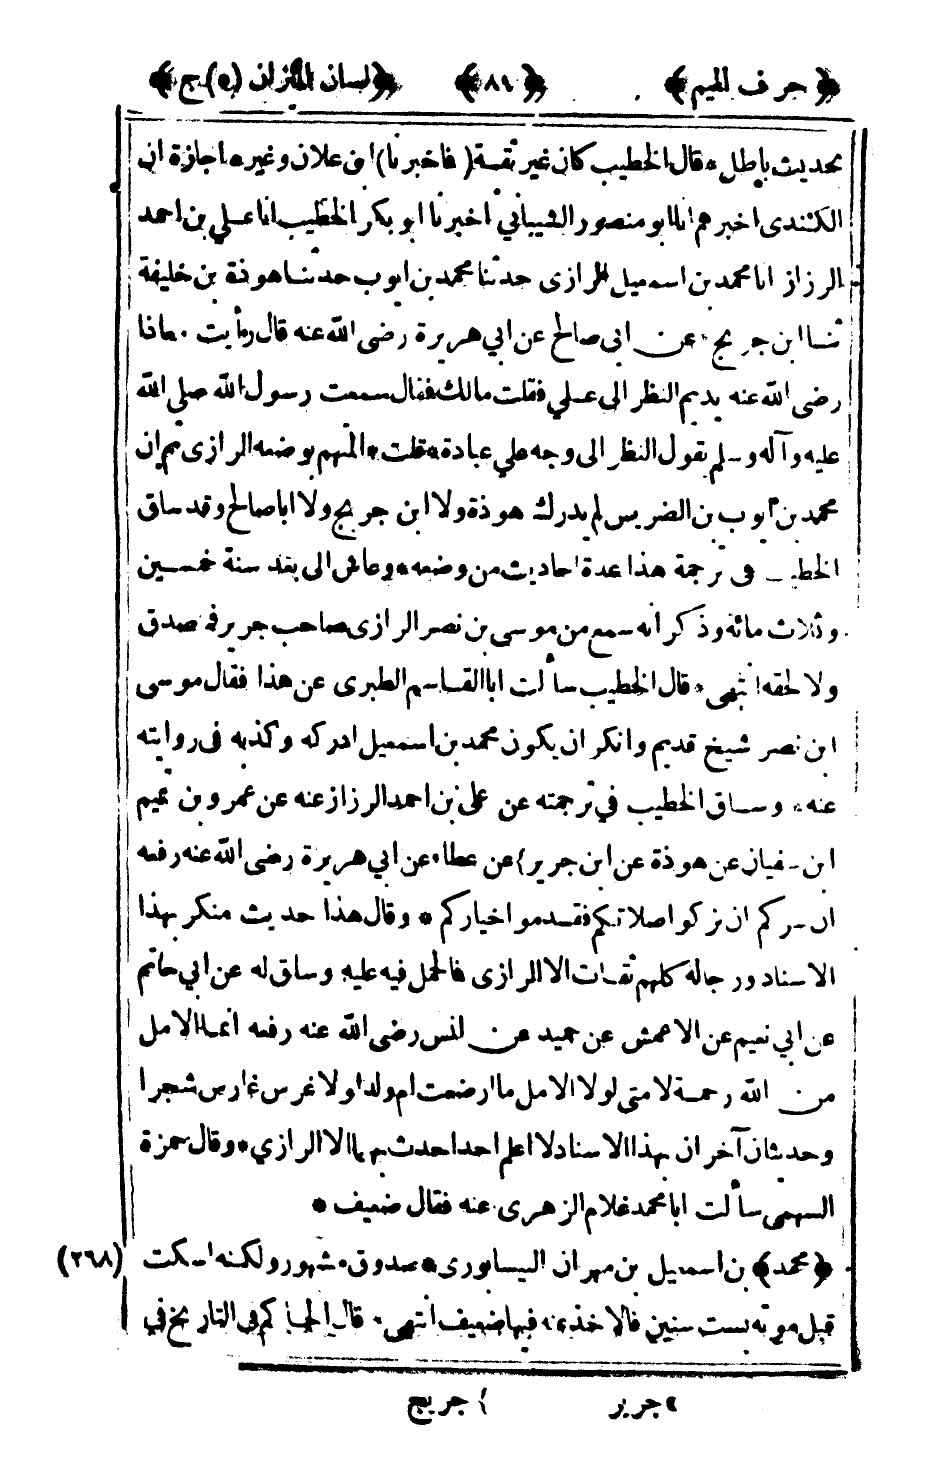 ﴿ حرف الميم ﴾ ﴿ ٨١ ﴾ ﴿ لسان الميزان (٥) ج ﴾
بحديث باطل * قال الخطيب كان غير ثقة ( فاخبرنا ) ابن علان وغيره اجازة ان
الكندى اخبرهم انا ابو منصور الشيباني اخبرنا ابو بكر الخطيب انا علي بن احمد
الرزاز انا محمد بن اسمعيل الرازى حدثنا محمد بن ايوب حدثنا هوذة بن خليفة
ثنا ابن جريج عن ابى صالح عن ابي هريرة رضى الله عنه قال رأيت معاذا
رضى الله عنه يديم النظر الى علي فقلت مالك فقال سمعت رسول الله صلى الله
عليه وآله وسلم يقول النظر الى وجه علي عبادة * قلت * المتهم بوضعه الرازى ثم ان
محمد بن ايوب بن الضريس لم يدرك هوذة ولا ابن جريج ولا ابا صالح وقد ساق
الخطيب فى ترجمة هذا عدة احاديث من وضعه * وعاش الى بعد سنة خمسين
وثلاث مائة وذكر انه سمع من موسى بن نصر الرازى صاحب جرير فما صدق
ولا لحقه انتهى * قال الخطيب سألت ابا القاسم الطبرى عن هذا فقال موسى
ابن نصر شيخ قديم وانكر ان يكون محمد بن اسمعيل ادركه وكذبه فى روايته
عنه * وساق الخطيب في ترجمته عن على بن احمد الرزاز عنه عن عمرو بن تميم
ابن سفيان عن هوذة عن ابن جرير } عن عطاء عن ابي هريرة رضى الله عنه رفعه
ان سركم ان تزكوا صلاتكم فقدموا خياركم * وقال هذا حديث منكر بهذا
الاسناد ورجاله كلهم ثقات الا الرازى فالحمل فيه عليه وساق له عن ابي حاتم
عن ابي نعيم عن الاعمش عن حميد عن انس رضى الله عنه رفعه انما الامل
من الله رحمة لامتى لولا الامل ما ارضعت ام ولدا ولا غرس غارس شجرا
وحديثان آخر ان بهذا الاسناد لا اعلم احدا حدث بها الا الرازي * وقال حمزة
السهمى سألت ابا محمد غلام الزهرى عنه فقال ضعيف *
﴿ محمد ﴾ بن اسمعيل بن مهران النيسابورى * صدوق مشهور ولكنه اسكت (٢٦٨)
قبل موته بست سنين فالاخذ عنه فيها ضعيف انتهى * قال الحاكم في التاريخ في
٢ جرير } جريج